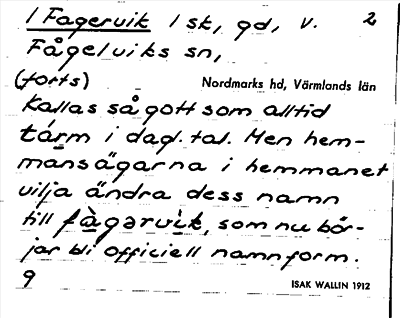 1 Fagervik 1 sk, gd, v. 2
Fågelviks sn,
(forts) Nordmarks hd, Värmlands län
Kallas så gott som alltid
tárm i dagl. tal. Men hem-
mansägarna i hemmanet
vilja ändra dess namn
till fàgərvìk, som nu bör-
jar bli officiell namnform.
9 ISAK WALLIN 1912